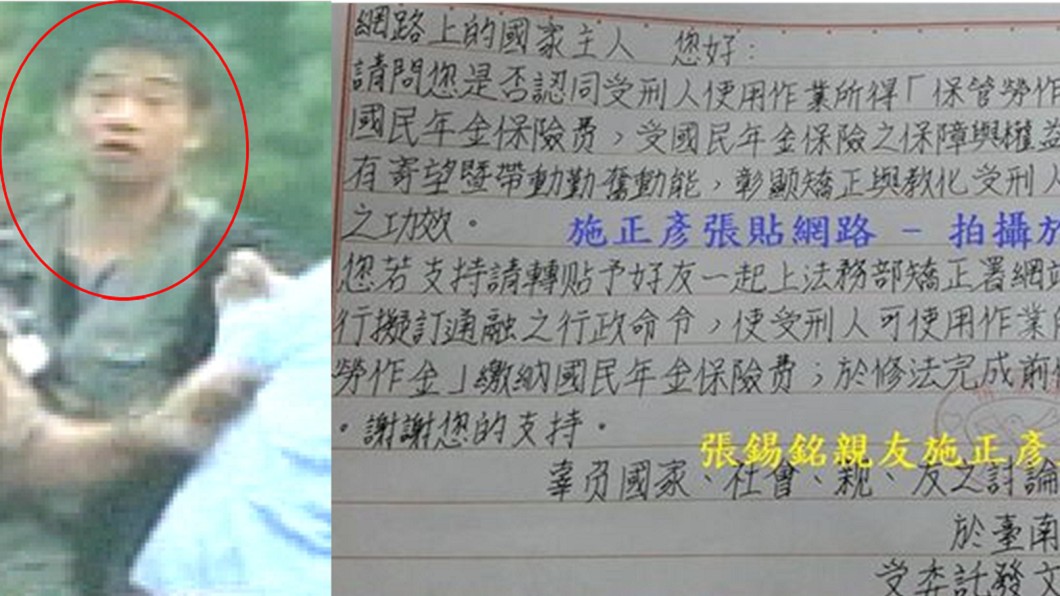 網路上的國家主人 您好:
請問您是否認同受刑人使用作業所得「保管勞作
國民年金保險費，受國民年金保險之保障與權益
有寄望暨帶動勤奮動能，彰顯矯正與教化受刑人
之功效。
施正彥張貼網路 - 拍攝於
您若支持請轉貼予好友一起上法務部矯正署網站
行擬訂通融之行政命令，使受刑人可使用作業
勞作金」繳納國民年金保險費；於修法完成前
。謝謝您的支持。
張錫銘親友施正彥
辜負國家、社會、親、友之討論
於臺南
受委託發文